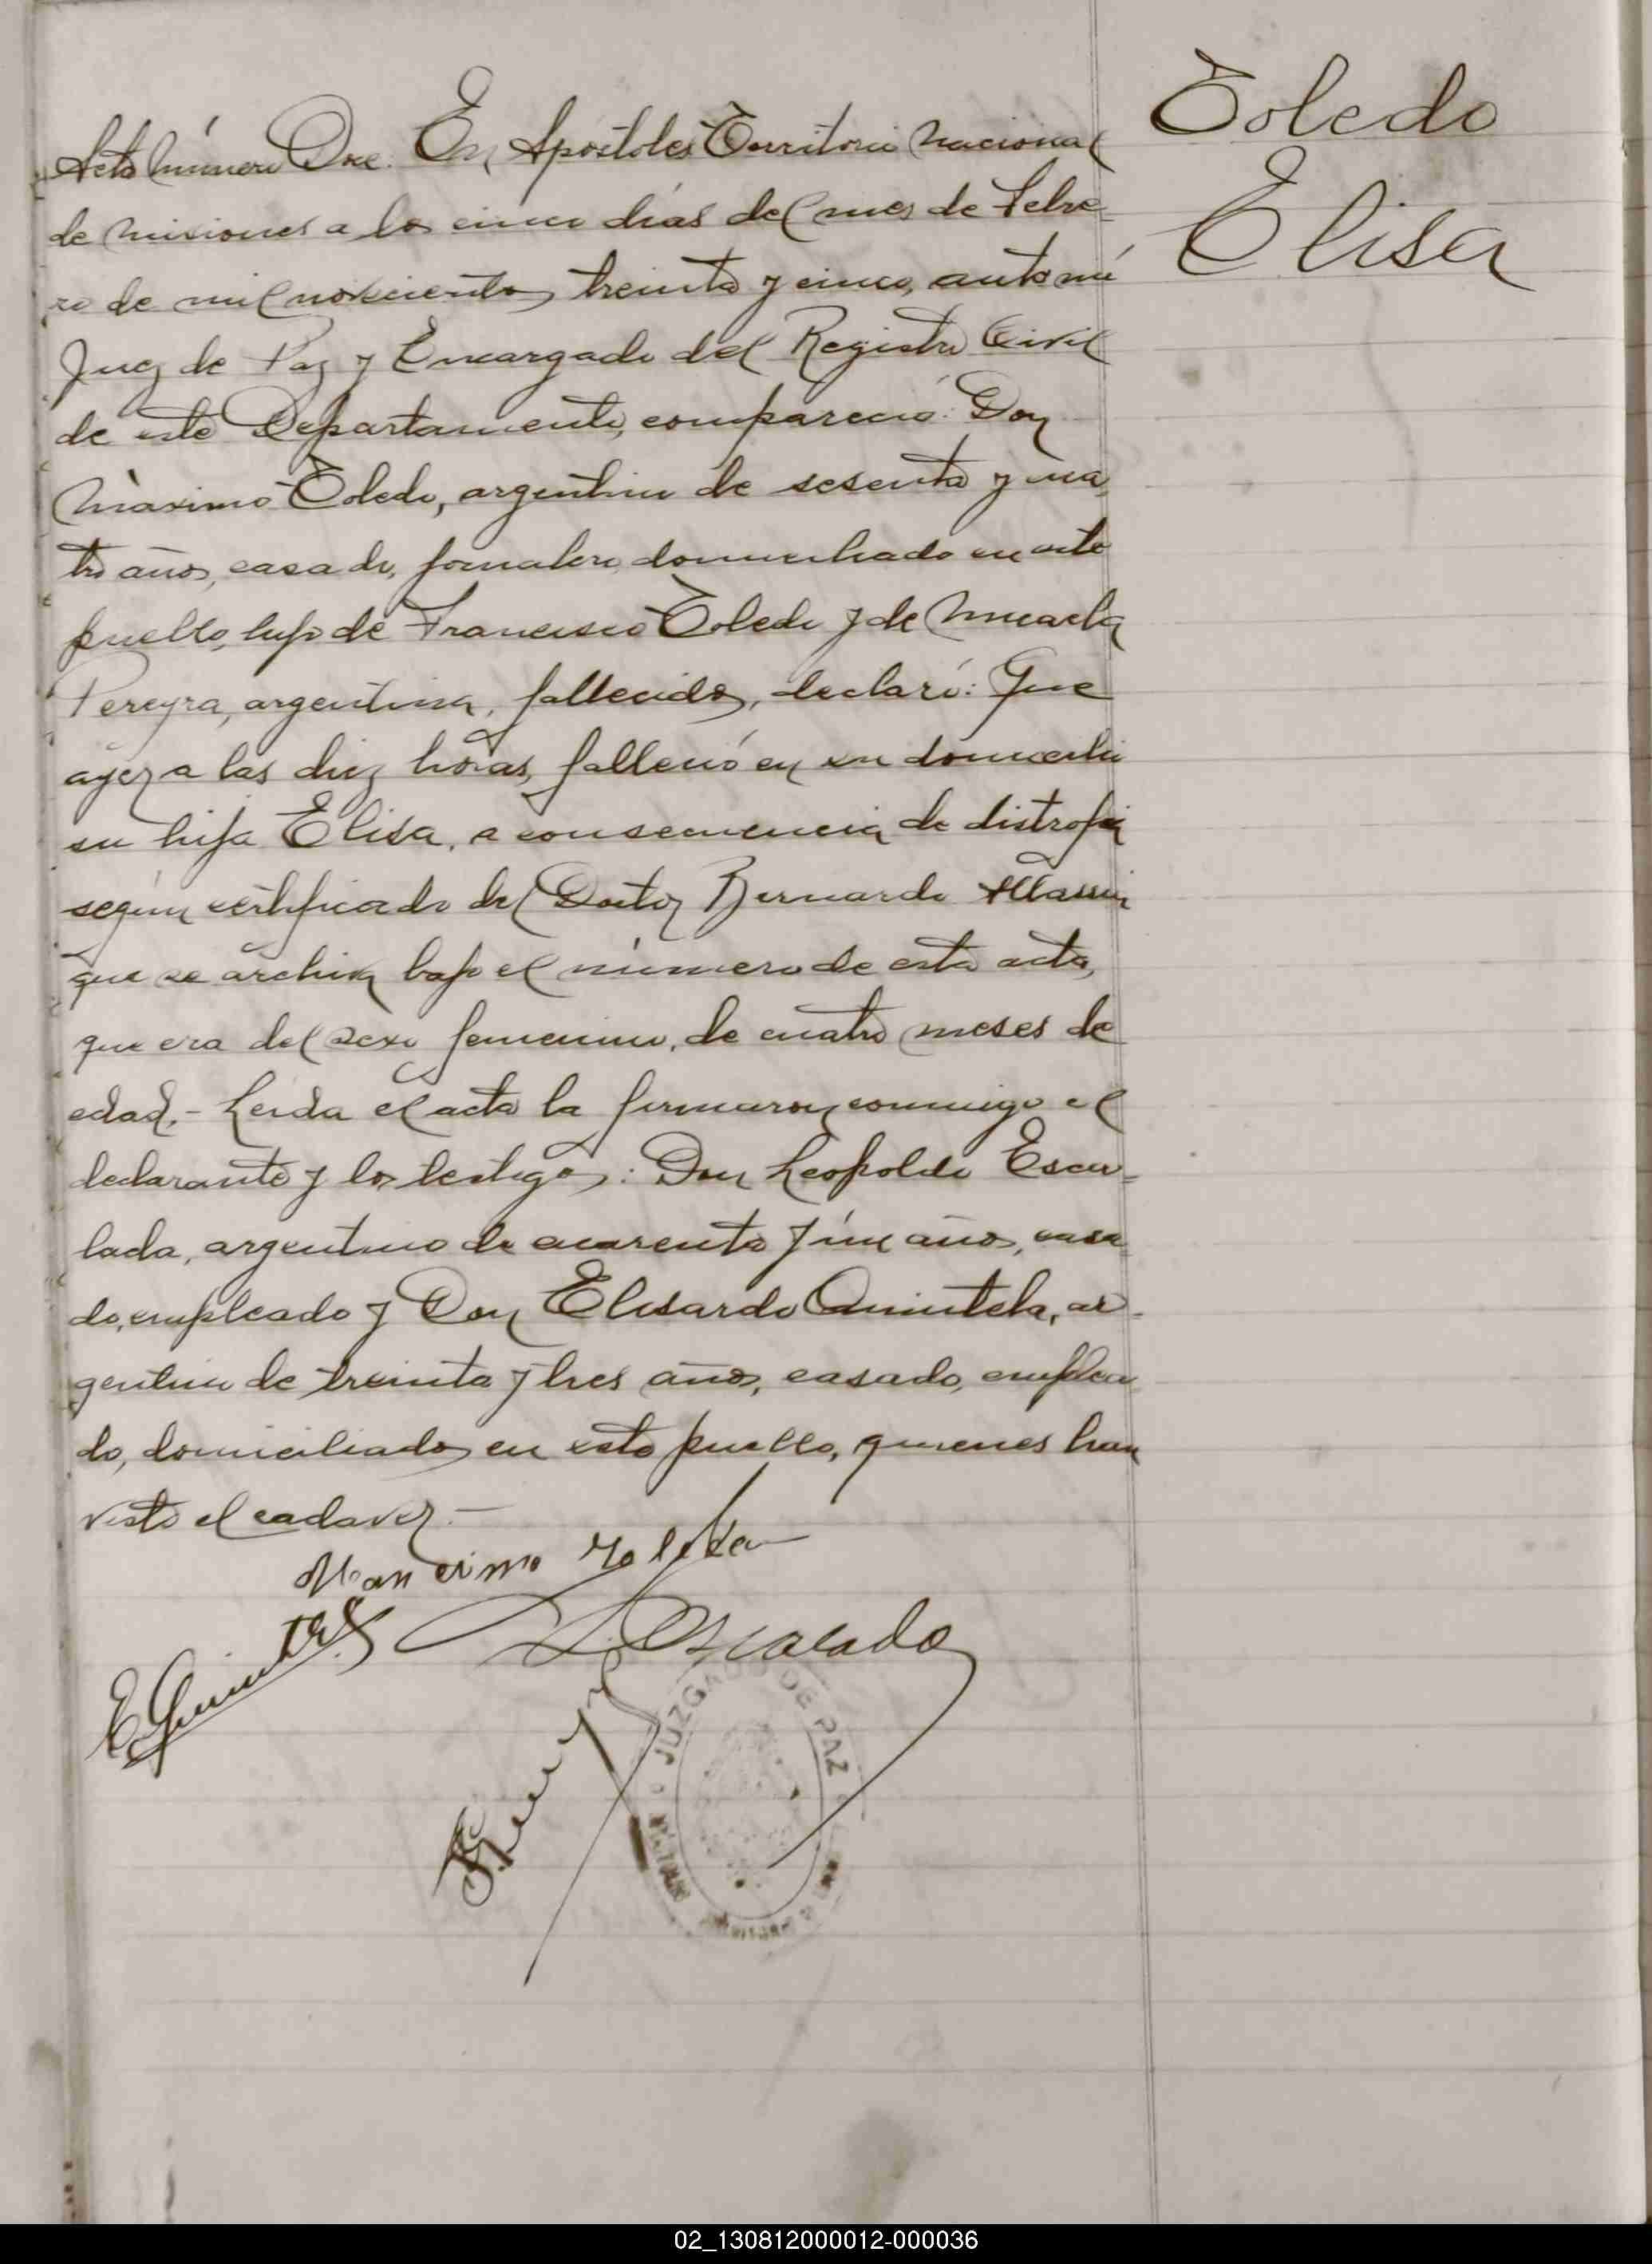 Toledo
Elisa
Acta número Doce. En Apóstoles Territorio Nacional
de Misiones a los cinco días del mes de Febre-
ro de mil novecientos treinta y cinco, ante mí
Juez de Paz y Encargado del Registro Civil
de este Departamento, compareció: Don
Máximo Toledo, argentino de sesenta y cua-
tro años, casado, jornalero domiciliado en este
pueblo, hijo de Francisco Toledo y de Micaela
Pereyra, argentina, fallecidos, declaró: Que
ayer a las diez horas, falleció en su domicilio
su hija Elisa, a consecuencia de distrofia
según certificado del Doctor Bernardo
que se archiva bajo el número de esta acta,
que era del sexo femenino, de cuatro meses de
edad.- Leída el acta la firmaron conmigo el
declarante y los testigos: Don Leopoldo Esca-
lada, argentino de cuarenta y un años, casa-
do, empleado y Don Elisardo Quintela, ar-
gentino de treinta y tres años, casado, emplea-
do, domiciliados en este pueblo, quienes han
visto el cadaver.-
Mancimo Toledo
L. Escalada
JUZGADO DE PAZ
02_130812000012-000036